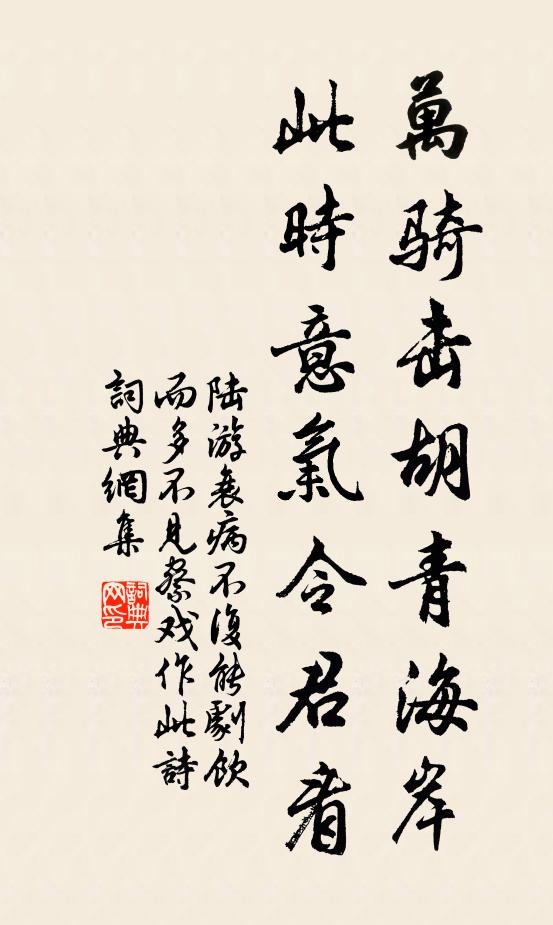 萬骑击胡青海岸
此時意氣令君看
陆游衰病不復能劇飲
而多不見察戏作此詩
詞典網集
詞典
网印